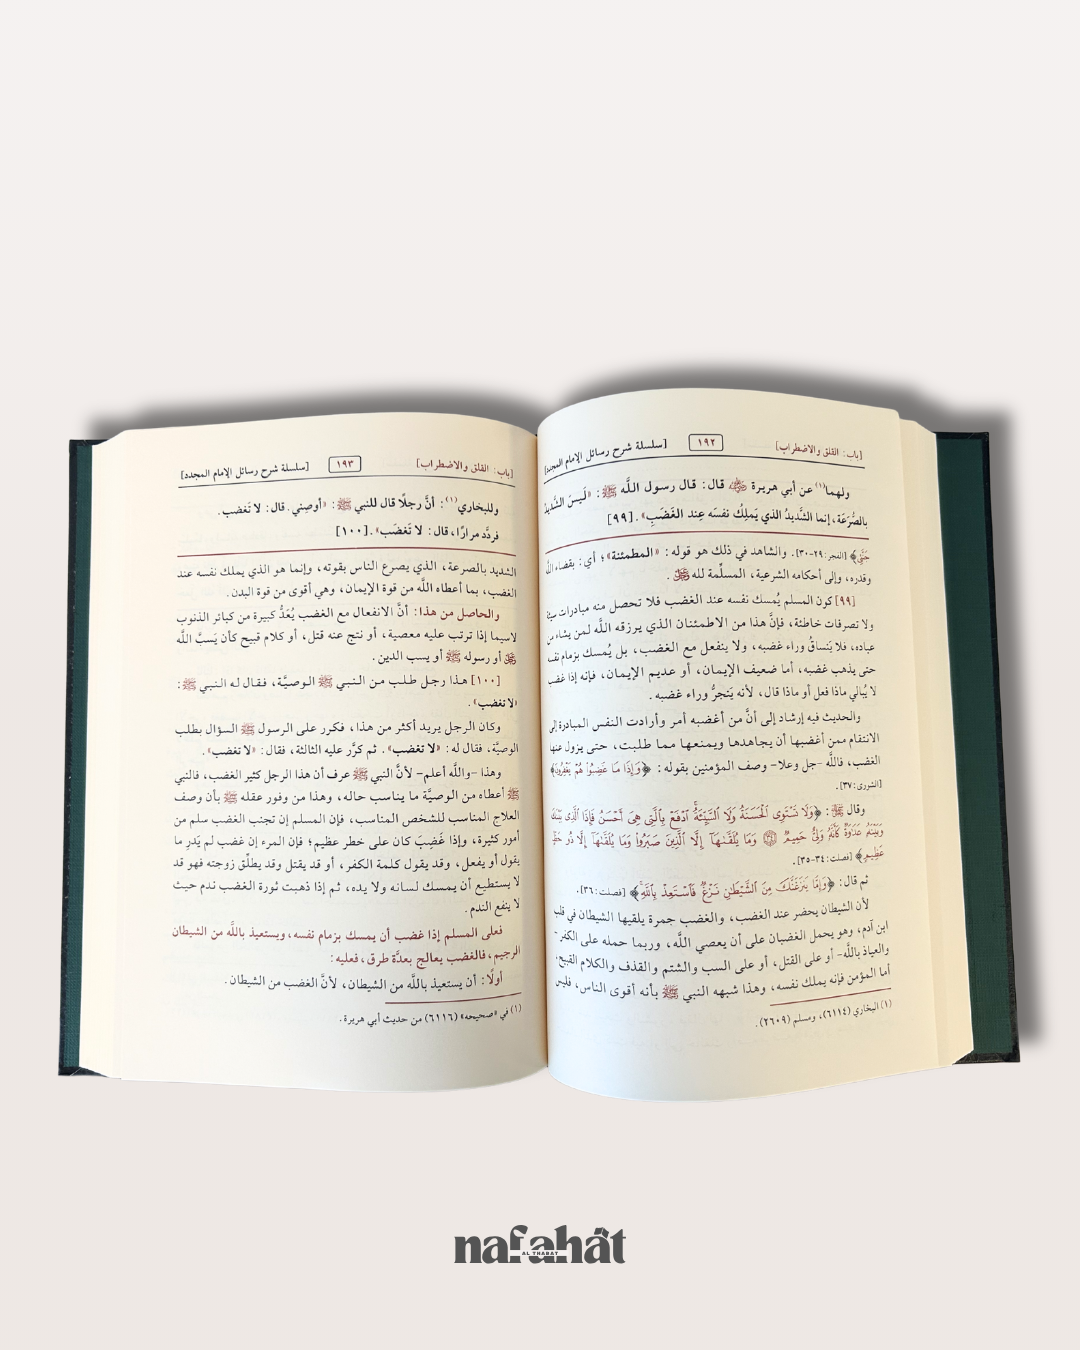 [باب: القلق والاضطراب]
١٩٢
[سلسلة شرح رسائل الإمام المجدد]
ولهما(١) عن أبي هريرة ﷺ قال: قال رسول اللَّه ﷺ: «لَيسَ الشَّديدُ
بالصُّرَعَة، إنما الشَّديدُ الذي يَملِكُ نفسَه عِند الغَضَبِ».[٩٩]
حَتَّىٰ﴾ [الفجر: ٢٩-٣٠]. والشاهد في ذلك هو قوله: «المطمئنة»؛ أي: بقضاء اللَّه
وقدره، وإلى أحكامه الشرعية، المسلِّمة لله ﷻ.
[٩٩] كون المسلم يُمسك نفسه عند الغضب فلا تحصل منه مبادرات سيئة
ولا تصرفات خاطئة، فإنَّ هذا من الاطمئنان الذي يرزقه اللَّه لمن يشاء من
عباده، فلا يَنساقُ وراء غضبه، ولا ينفعل مع الغضب، بل يُمسك بزمام نفسه
حتى يذهب غضبه، أما ضعيف الإيمان، أو عديم الإيمان، فإنه إذا غضب
لا يُبالي ماذا فعل أو ماذا قال، لأنه يَنجرُّ وراء غضبه.
والحديث فيه إرشاد إلى أنَّ من أغضبه أمر وأرادت النفس المبادرة إلى
الانتقام ممن أغضبها أن يجاهدها ويمنعها مما طلبت، حتى يزول عنها
الغضب، فاللَّه -جل وعلا- وصف المؤمنين بقوله: ﴿وَإِذَا مَا غَضِبُوا۟ هُمْ يَغْفِرُونَ﴾
[الشورى: ٣٧].
وقال ﷻ: ﴿وَلَا تَسْتَوِى ٱلْحَسَنَةُ وَلَا ٱلسَّيِّئَةُ ۚ ٱدْفَعْ بِٱلَّتِى هِىَ أَحْسَنُ فَإِذَا ٱلَّذِى بَيْنَكَ
وَبَيْنَهُۥ عَدَٰوَةٌ كَأَنَّهُۥ وَلِىٌّ حَمِيمٌ ۝ وَمَا يُلَقَّىٰهَآ إِلَّا ٱلَّذِينَ صَبَرُوا۟ وَمَا يُلَقَّىٰهَآ إِلَّا ذُو حَظٍّ
عَظِيمٍ﴾ [فصلت: ٣٤-٣٥].
ثم قال: ﴿وَإِمَّا يَنزَغَنَّكَ مِنَ ٱلشَّيْطَٰنِ نَزْغٌ فَٱسْتَعِذْ بِٱللَّهِ﴾ [فصلت: ٣٦].
لأن الشيطان يحضر عند الغضب، والغضب جمرة يلقيها الشيطان في قلب
ابن آدم، وهو يحمل الغضبان على أن يعصي اللَّه، وربما حمله على الكفر -
والعياذ باللَّه- أو على القتل، أو على السب والشتم والقذف والكلام القبيح.
أما المؤمن فإنه يملك نفسه، وهذا شبهه النبي ﷺ بأنه أقوى الناس، فليس
(١) البخاري (٦١١٤)، ومسلم (٢٦٠٩).
[باب: القلق والاضطراب]
١٩٣
[سلسلة شرح رسائل الإمام المجدد]
وللبخاري(١): أنَّ رجلًا قال للنبي ﷺ: «أوصِني. قال: لا تَغضب.
فردَّد مرارًا، قال: لا تَغضَب».[١٠٠]
الشديد بالصرعة، الذي يصرع الناس بقوته، وإنما هو الذي يملك نفسه عند
الغضب، بما أعطاه اللَّه من قوة الإيمان، وهي أقوى من قوة البدن.
والحاصل من هذا: أنَّ الانفعال مع الغضب يُعَدُّ كبيرة من كبائر الذنوب
لاسيما إذا ترتب عليه معصية، أو نتج عنه قتل، أو كلام قبيح كأن يَسبَّ اللَّه
ﷻ أو رسوله ﷺ أو يسب الدين.
[١٠٠] هذا رجل طلب من النبي ﷺ الوصيَّة، فقال له النبي ﷺ:
«لا تغضب».
وكان الرجل يريد أكثر من هذا، فكرر على الرسول ﷺ السؤال بطلب
الوصيَّة، فقال له: «لا تغضب». ثم كرَّر عليه الثالثة، فقال: «لا تغضب».
وهذا -واللَّه أعلم- لأنَّ النبي ﷺ عرف أن هذا الرجل كثير الغضب، فالنبي
ﷺ أعطاه من الوصيَّة ما يناسب حاله، وهذا من وفور عقله ﷺ بأن وصف
العلاج المناسب للشخص المناسب، فإن المسلم إن تجنب الغضب سلم من
أمور كثيرة، وإذا غَضِبَ كان على خطر عظيم؛ فإن المرء إن غضب لم يَدرِ ما
يقول أو يفعل، وقد يقول كلمة الكفر، أو قد يقتل وقد يطلِّق زوجته فهو قد
لا يستطيع أن يمسك لسانه ولا يده، ثم إذا ذهبت ثورة الغضب ندم حيث
لا ينفع الندم.
فعلى المسلم إذا غضب أن يمسك بزمام نفسه، ويستعيذ باللَّه من الشيطان
الرجيم، فالغضب يعالج بعدَّة طرق، فعليه:
أولًا: أن يستعيذ باللَّه من الشيطان، لأنَّ الغضب من الشيطان.
(١) في «صحيحه» (٦١١٦) من حديث أبي هريرة.
nafahât
AL THABAT